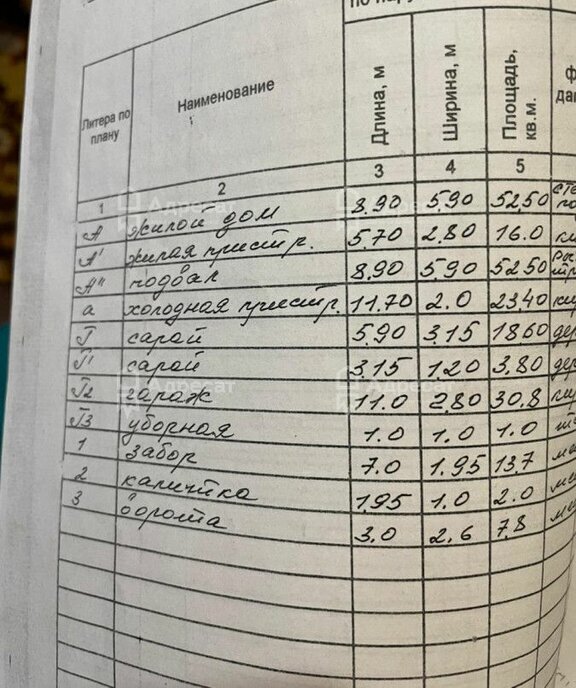 Литера по плану Наименование Длина, м Ширина, м Площадь, кв.м.
1 2 3 4 5
А жилой дом 8.90 5.90 52.50
А' жилая пристр. 5.70 2.80 16.0
А" подвал 8.90 5.90 52.50
а холодная пристр. 11.70 2.0 23.40
Г сарай 5.90 3.15 18.60
Г1 сарай 3.15 1.20 3.80
Г2 гараж 11.0 2.80 30.8
Г3 уборная 1.0 1.0 1.0
1 забор 7.0 1.95 13.7
2 калитка 1.95 1.0 2.0
3 ворота 3.0 2.6 7.8
Адресат
Адресат
Адресат
Адресат